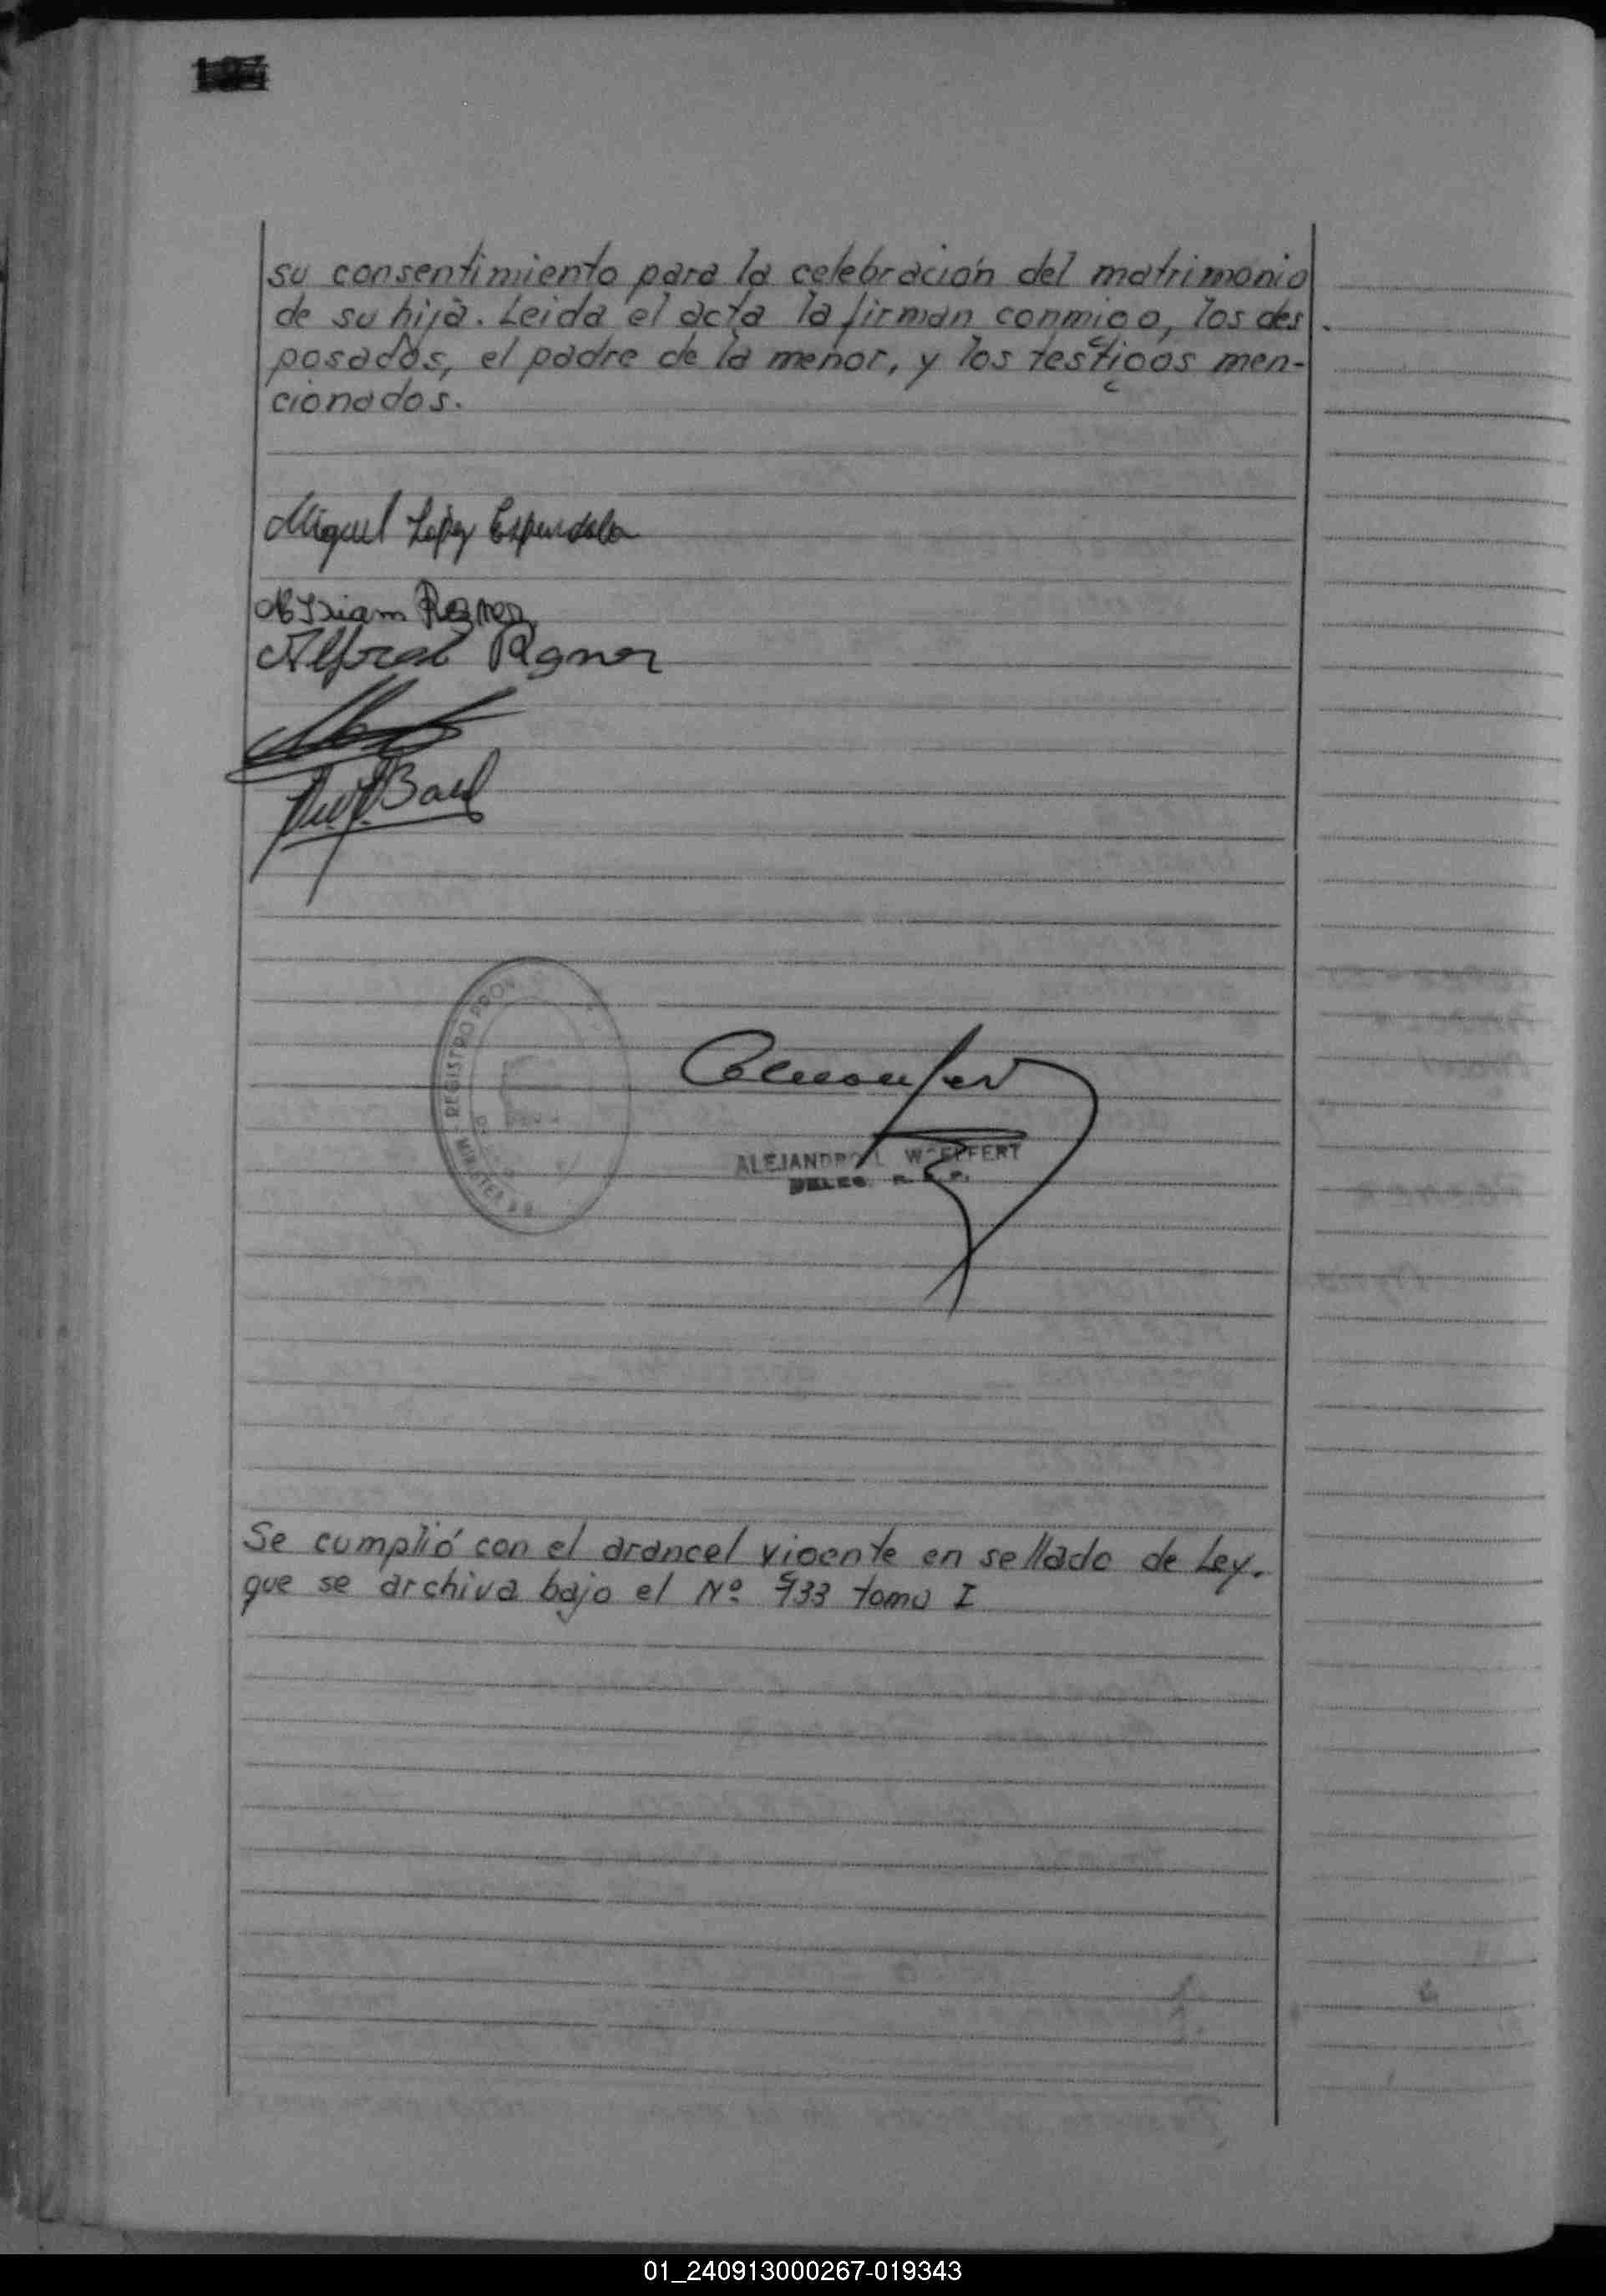 su consentimiento para la celebración del matrimonio
de su hija. Leida el acta la firman conmigo, los des
posados, el padre de la menor, y los testigos men-
cionados.
Miguel López Espindola
Miriam Regner
Alfred Regner
REGISTRO PROV
MINISTER
ALEJANDRO L. WOELFFERT
DELEG. R. C. P.
Se cumplió con el arancel vigente en sellado de Ley.
que se archiva bajo el Nº 933 tomo I
01_240913000267-019343